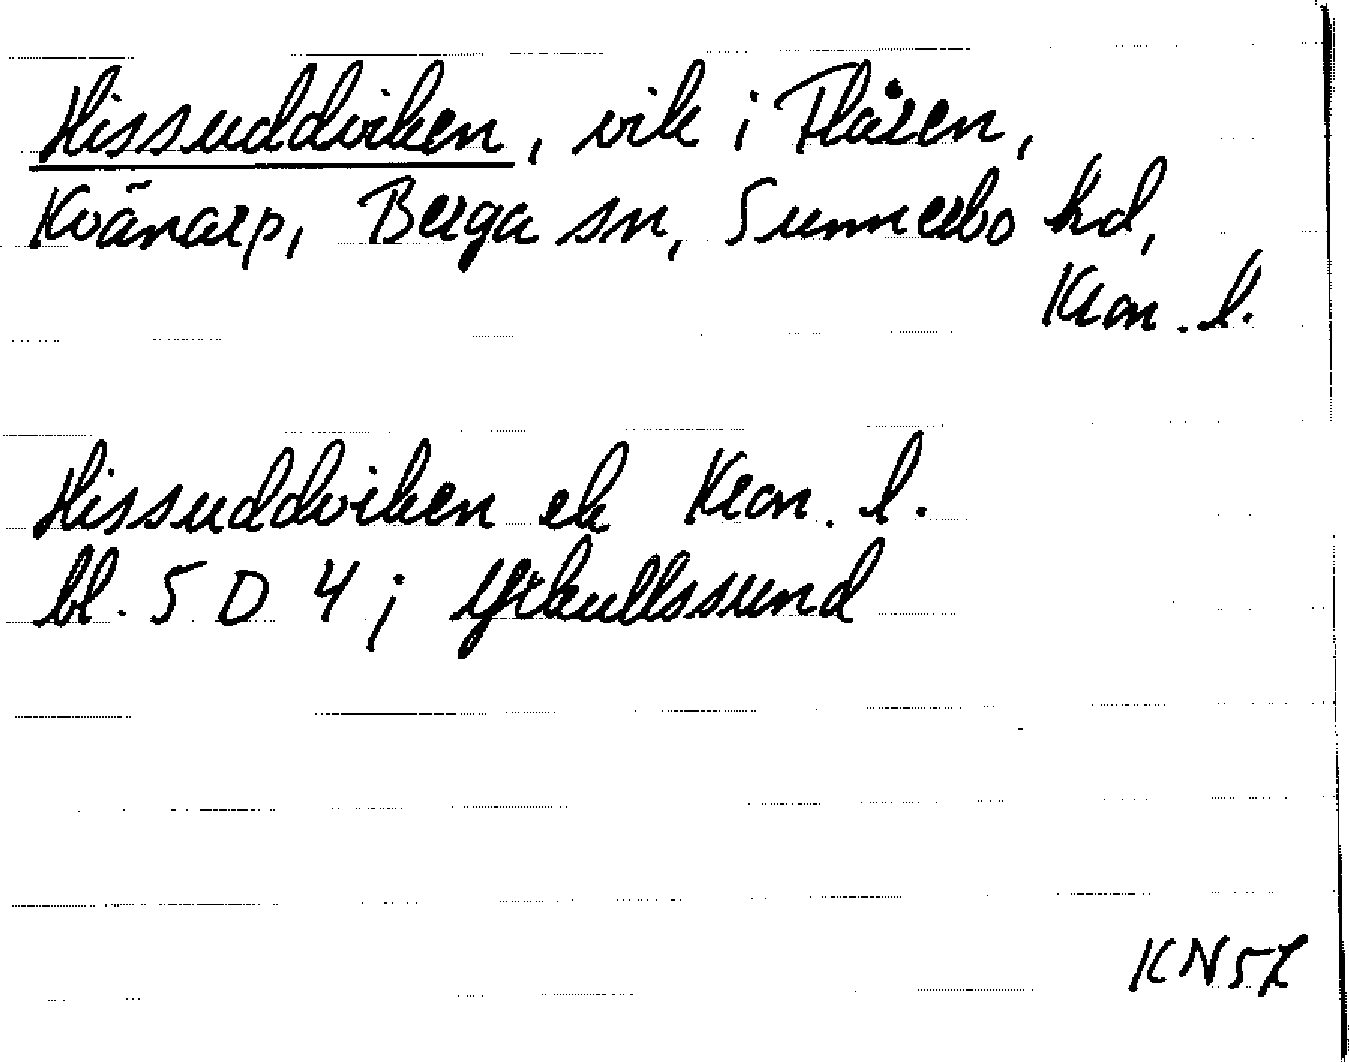 Hissuddviken, vik i Flåren,
Kvänarp, Berga sn, Sunnerbo hd,
Kron. l.
Hissuddviken ek Kron. l.
bl. 5 D 4 j
KN57